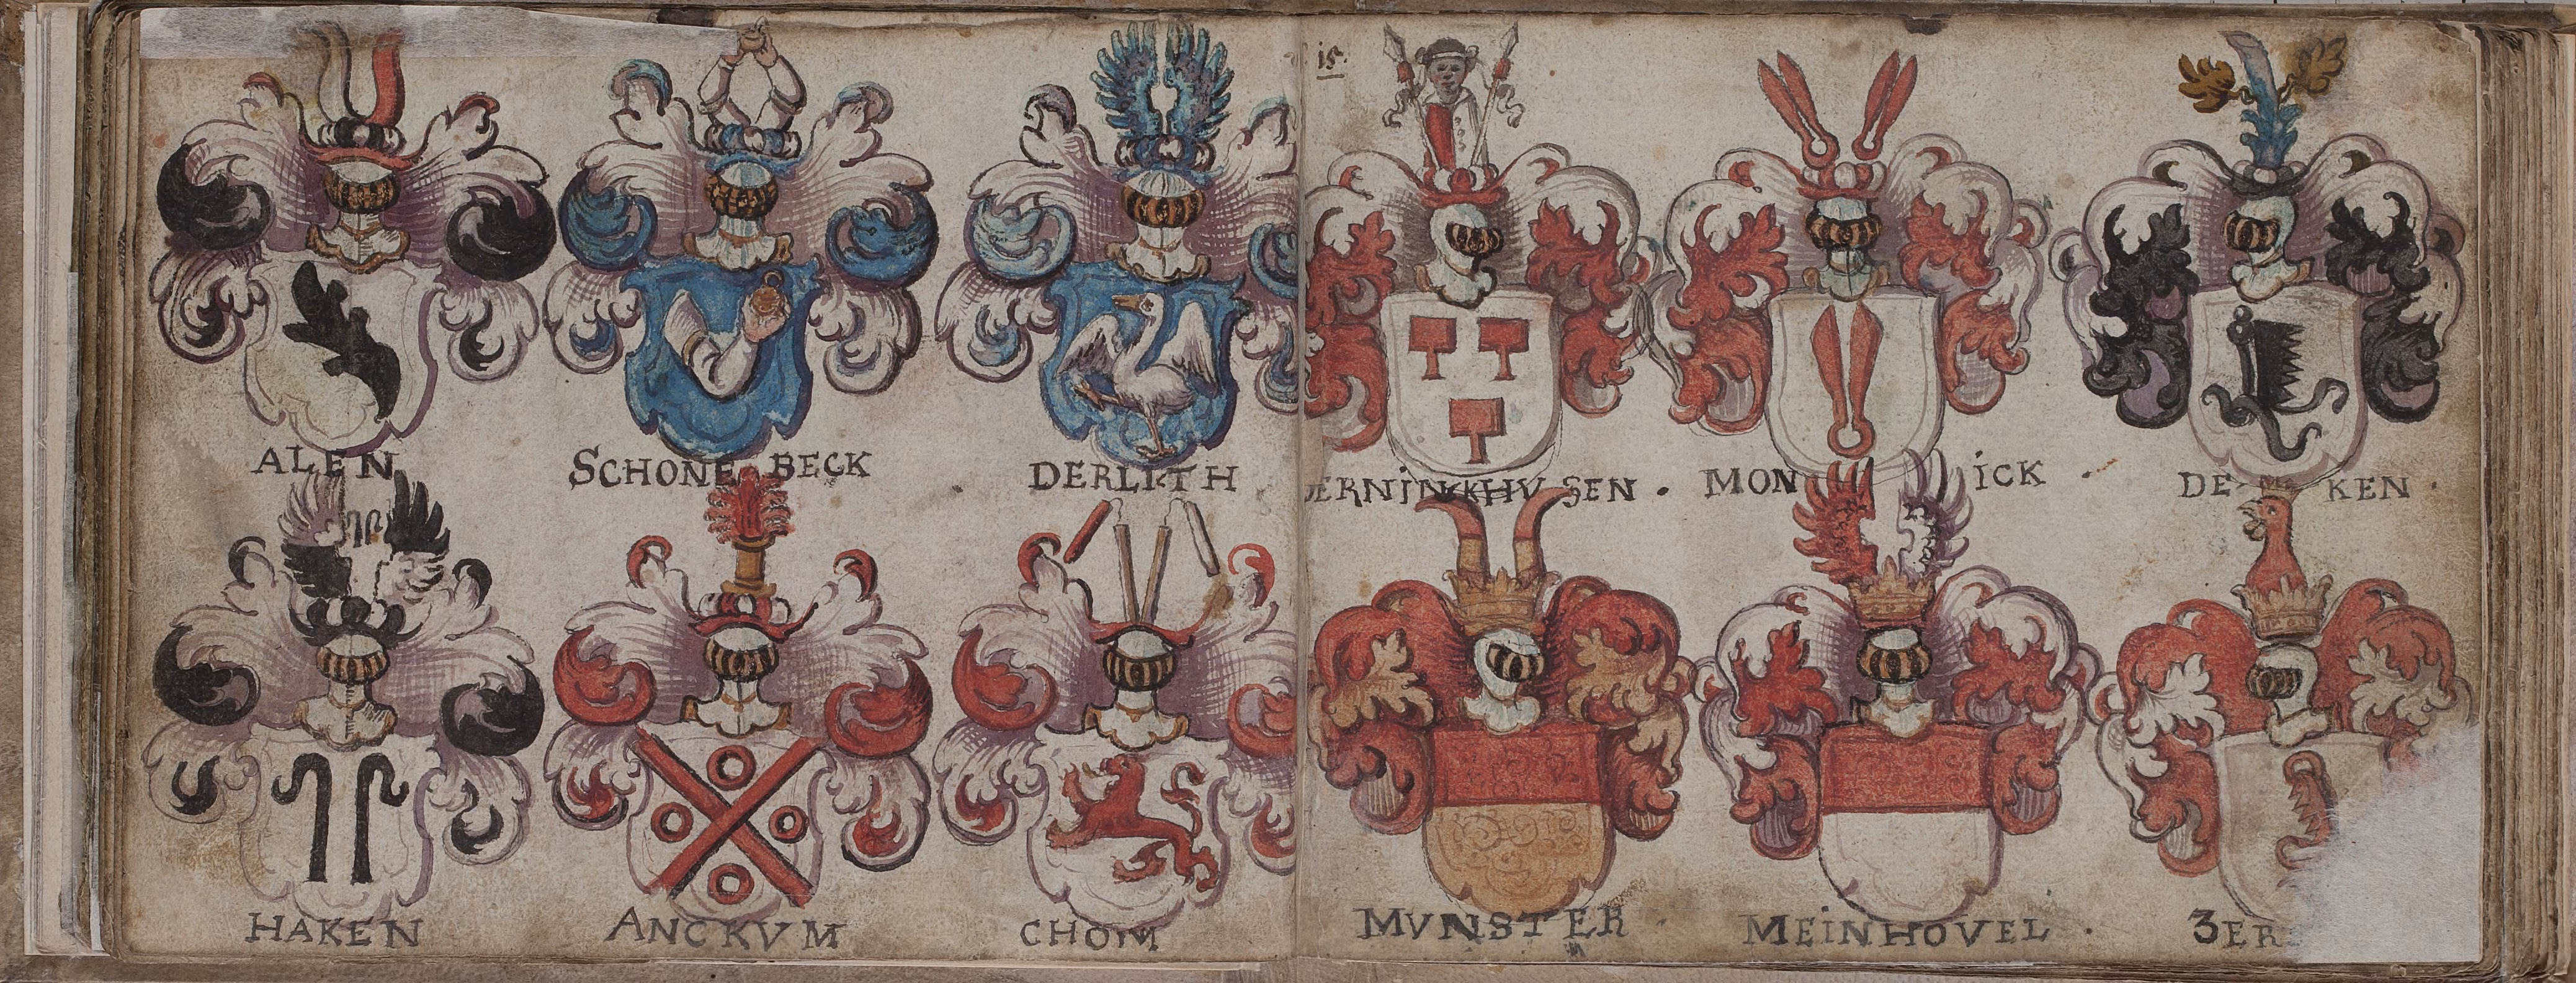 ALEN
SCHONE BECK
DERLITH
HAKEN
ANCKVM
CHOM
15.
ERNINKHVSEN.
MON ICK.
DE KEN.
MVNSTER.
MEINHOVEL.
3ER